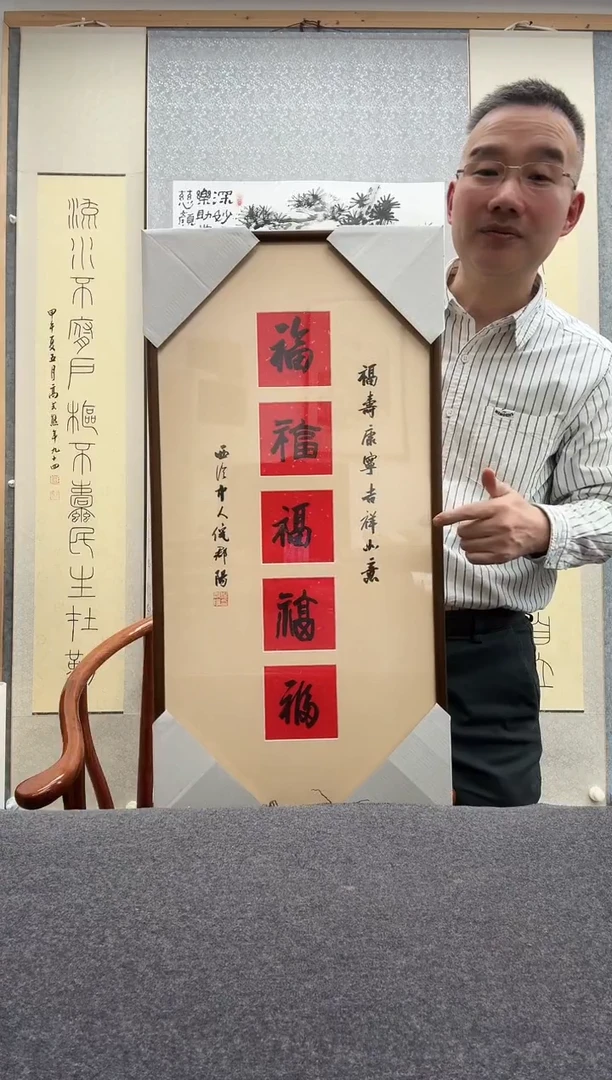 福壽康寧吉祥如意
福
福
福
福
福
西泠中人倪郡陽
深妙
樂助
流水不腐戶樞不蠹民生在勤
甲午夏五月高式熊年九十四